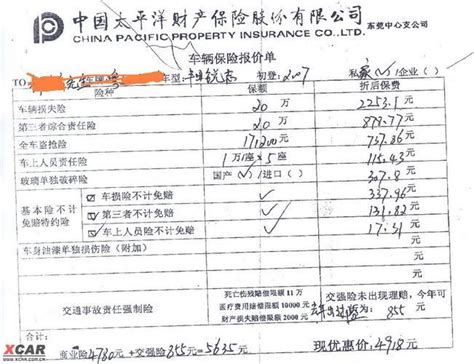 中国太平洋财产保险股份有限公司 东莞中心支公司
CHINA PACIFIC PROPERTY INSURANCE CO.,LTD.
车辆保险报价单
TO 先生 车型: 丰田锐志 初登: 2007 私家(√)企业( )
险种 保额 折后保费
车辆损失险 20 万 2253.1 元
第三者综合责任险 20 万 878.77 元
全车盗抢险 171200 元 737.86 元
车上人员责任险 1万/座×5座 115.43 元
玻璃单独破碎险 国产(√)/进口( ) 307.8 元
基本险不计免赔特约险
☑ 车损险不计免赔 √ 337.96 元
☑ 第三者不计免赔 √ 131.82 元
☑ 车上人员险不计免赔 √ 17.31 元
车身油漆单独损伤险(附加) 元
交通事故责任强制险
死亡伤残赔偿限额 11万
医疗费用赔偿限额 10000 元
财产损失赔偿限额 2000 元
交强险未出现理赔,今年可
855 元
合计
商业险4780元+交强险855元=5635 现优惠价: 4918 元
XCAR
www.xcar.com.cn